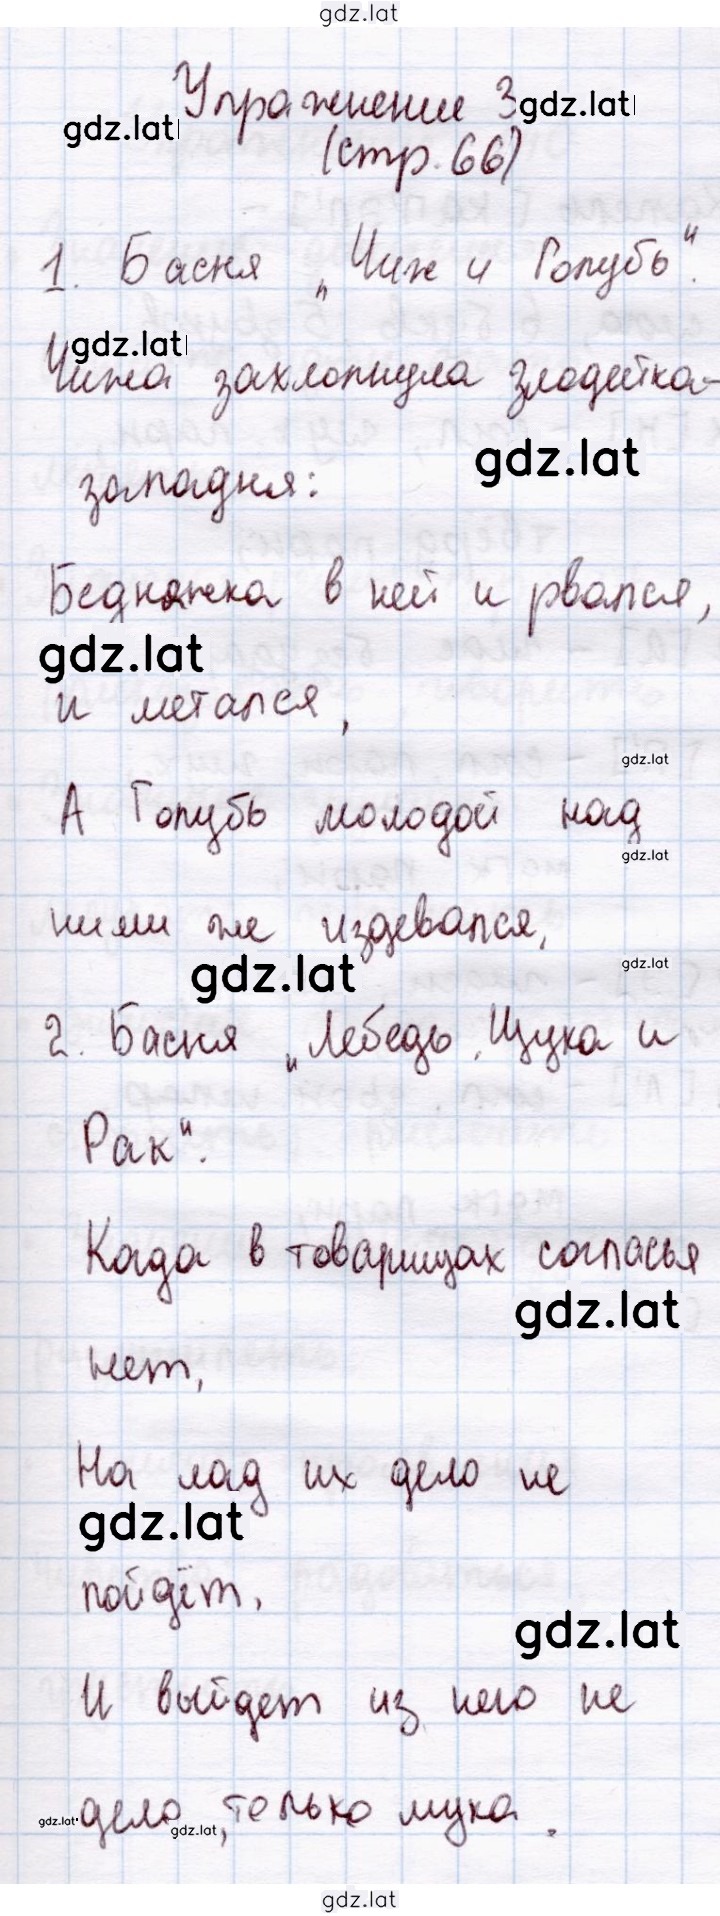 gdz.lat
Упражнение 3 gdz.lat
gdz.lat
(стр. 66)
1. Басня „Чиж и Голубь".
gdz.lat
Чижа захлопнула злодейка-
gdz.lat
западня:
Бедняжка в ней и рвался,
gdz.lat
и метался,
gdz.lat
А Голубь молодой над
gdz.lat
ними же издевался,
gdz.lat
gdz.lat
2. Басня „Лебедь, Щука и
Рак".
Когда в товарищах согласья
gdz.lat
нет,
На лад их дело не
gdz.lat
пойдёт,
gdz.lat
И выйдет из него не
gdz.lat дело, только мука.
gdz.lat
gdz.lat